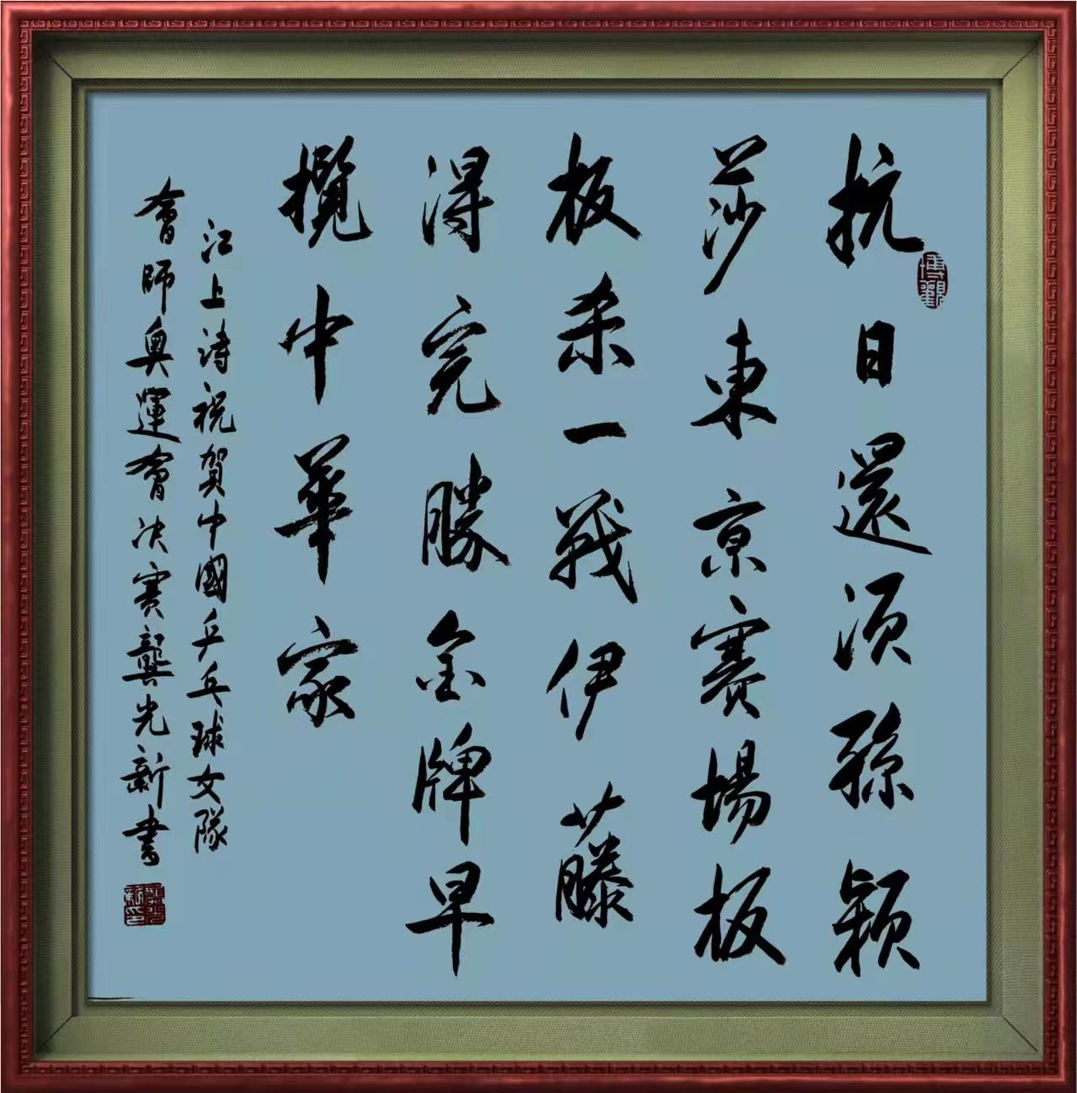 抗日還須孫穎
莎東京賽場板
板杀一戰伊藤
淂完勝金牌早
攬中華家
江上涛祝賀中國乒乓球女隊
會師奥運會决赛龔光新書
博觀